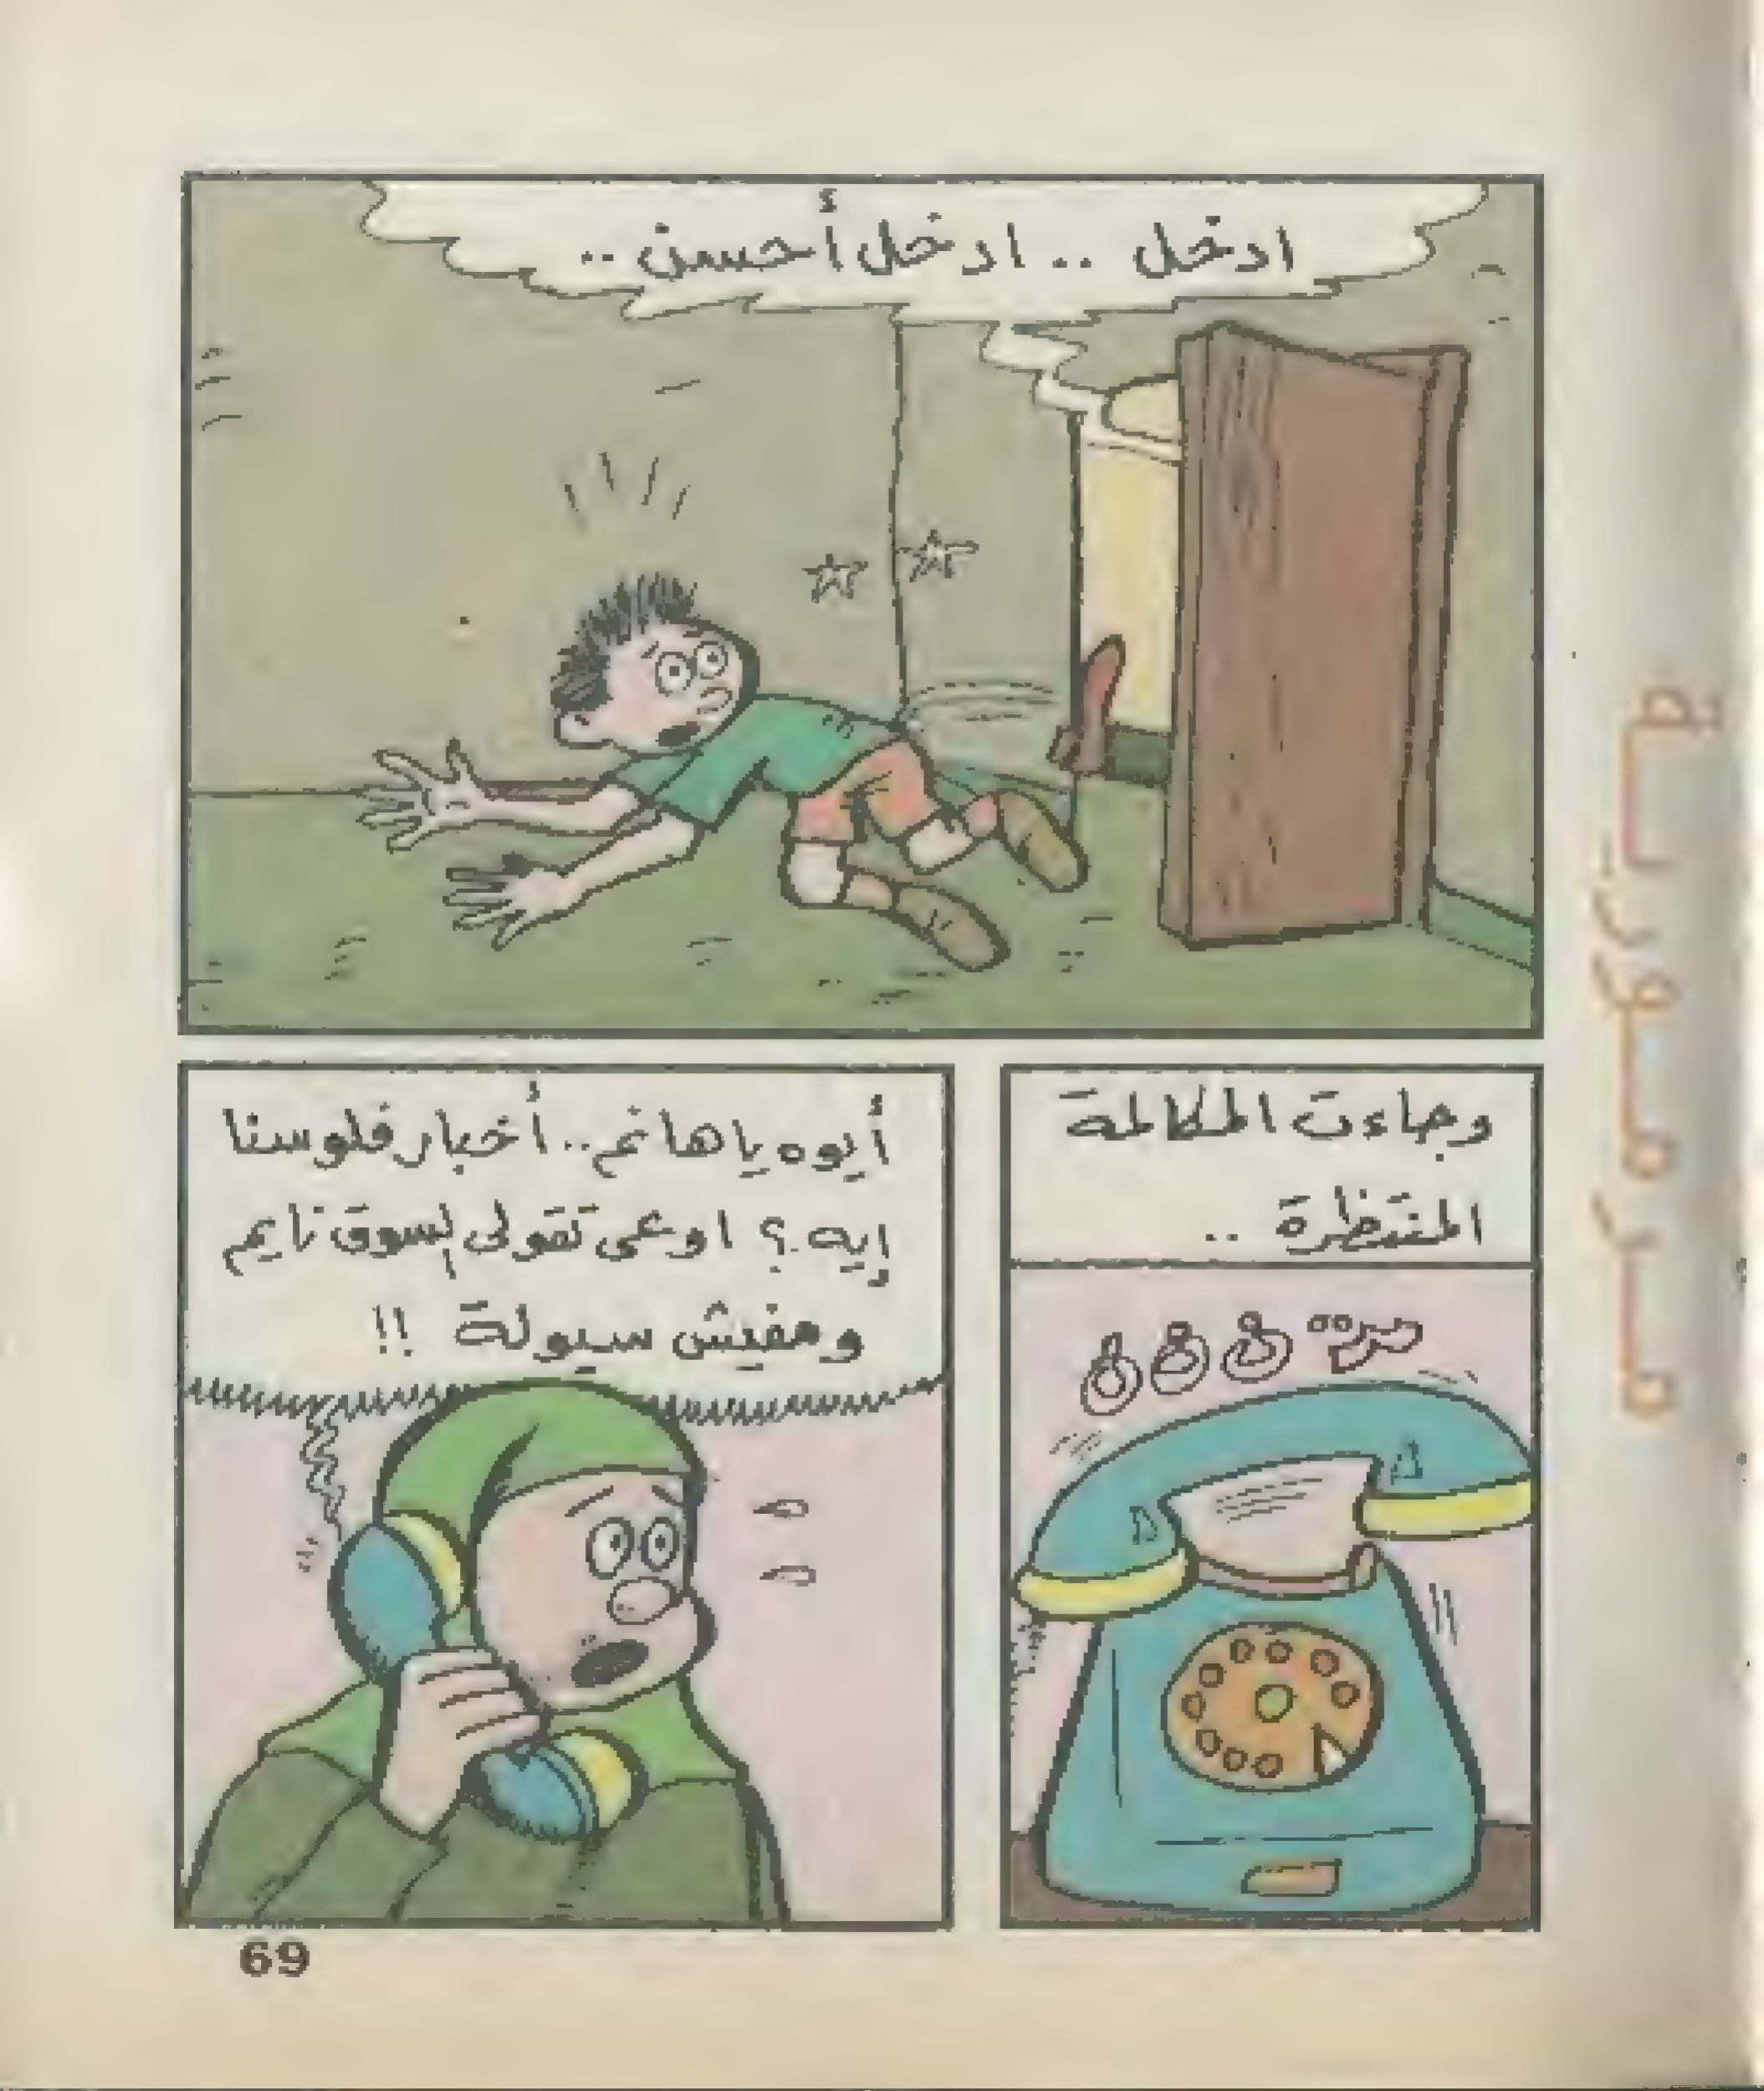 ادخل .. ادخل أحسن ..
وجاءت المكالمة
المنتظرة ..
ترررن
أيوه ياهانم.. أخبار فلوسنا
إيه ؟ اوعى تقولى السوق نايم
ومفيش سيولة !!
69